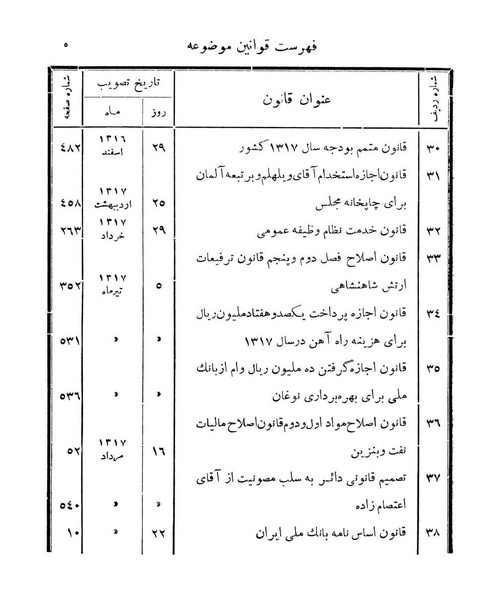 فهرست قوانین موضوعه ٥
شماره ردیف عنوان قانون تاریخ تصویب شماره صفحه
روز ماه
۳۰ قانون متمم بودجه سال ۱۳۱۷ کشور ۲۹ ۱۳۱۶ اسفند ٤٨٢
۳۱ قانون اجازه استخدام آقای ویلهلم وبر تبعه آلمان
برای چاپخانه مجلس ۲٥ ۱۳۱۷ اردیبهشت ٤٥٨
۳۲ قانون خدمت نظام وظیفه عمومی ۲۹ ۱۳۱۷ خرداد ۲٦۳
۳۳ قانون اصلاح فصل دوم و پنجم قانون ترفیعات
ارتش شاهنشاهی ٥ ۱۳۱۷ تیرماه ۳٥۲
۳٤ قانون اجازه پرداخت یکصد و هفتاد ملیون ریال
برای هزینه راه آهن در سال ۱۳۱۷ » » ٥۳۱
۳٥ قانون اجازه گرفتن ده ملیون ریال وام از بانك
ملی برای بهره برداری نوغان » » ٥۳٦
۳٦ قانون اصلاح مواد اول و دوم قانون اصلاح مالیات
نفت و بنزین ۱٦ ۱۳۱۷ مرداد ٥۲
۳۷ تصمیم قانونی دائر به سلب مصونیت از آقای
اعتصام زاده » » ٥٤۰
۳۸ قانون اساس نامه بانك ملی ایران ۲۲ » ۱۰